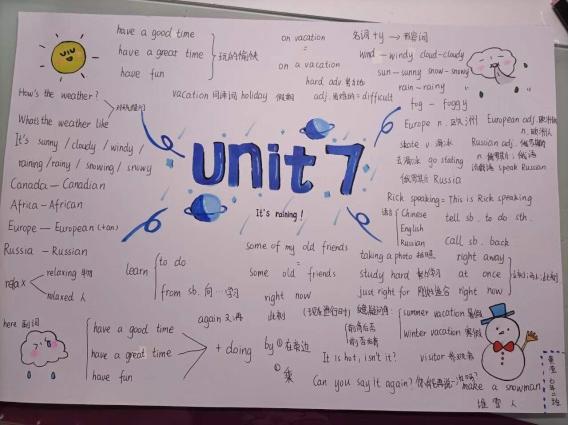 have a good time
have a great time
have fun
玩的愉快
on vacation
=
on a vacation
名词 +y → 形容词
wind — windy cloud-cloudy
sun — sunny snow-snowy
rain — rainy
fog — foggy
hard adv. 努力地
adj. 困难的 = difficult
vacation 同译词 holiday 假期
How's the weather?
What's the weather like
It's sunny / cloudy / windy /
raining / rainy / snowing / snowy
Canada — Canadian
Africa — African
Europe — European (+an)
Russia — Russian
relax
relaxing 物
relaxed 人
unit 7
It's raining!
Europe n. 欧洲
European adj. 欧洲的
n. 欧洲人
skate v 滑冰
去滑冰 go skating
俄罗斯 Russia
Russian adj. 俄罗斯的
n. 俄罗斯人; 俄语
speak Russian
Rick speaking = This is Rick speaking
语言
Chinese
English
Russian
tell sb. to do sth.
call sb. back
learn
to do
from sb. 向…学习
some of my old friends
=
some old friends
taking a photo 拍照
study hard 努力学习
just right for 刚好适合
right away
at once
right now
right now
此刻
(现在进行时)
again 又,再
here 副词
have a good time
have a great time
have fun
+ doing
by ① 在旁边
② 乘
It is hot, isn't it?
summer vacation 暑假
winter vacation 寒假
visitor 参观者
Can you say it again?
make a snowman
堆雪人